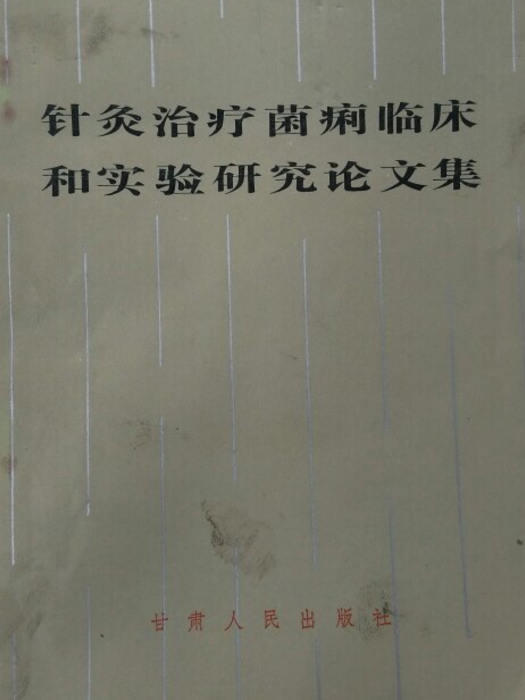 针灸治疗菌痢临床
和实验研究论文集
甘肃人民出版社